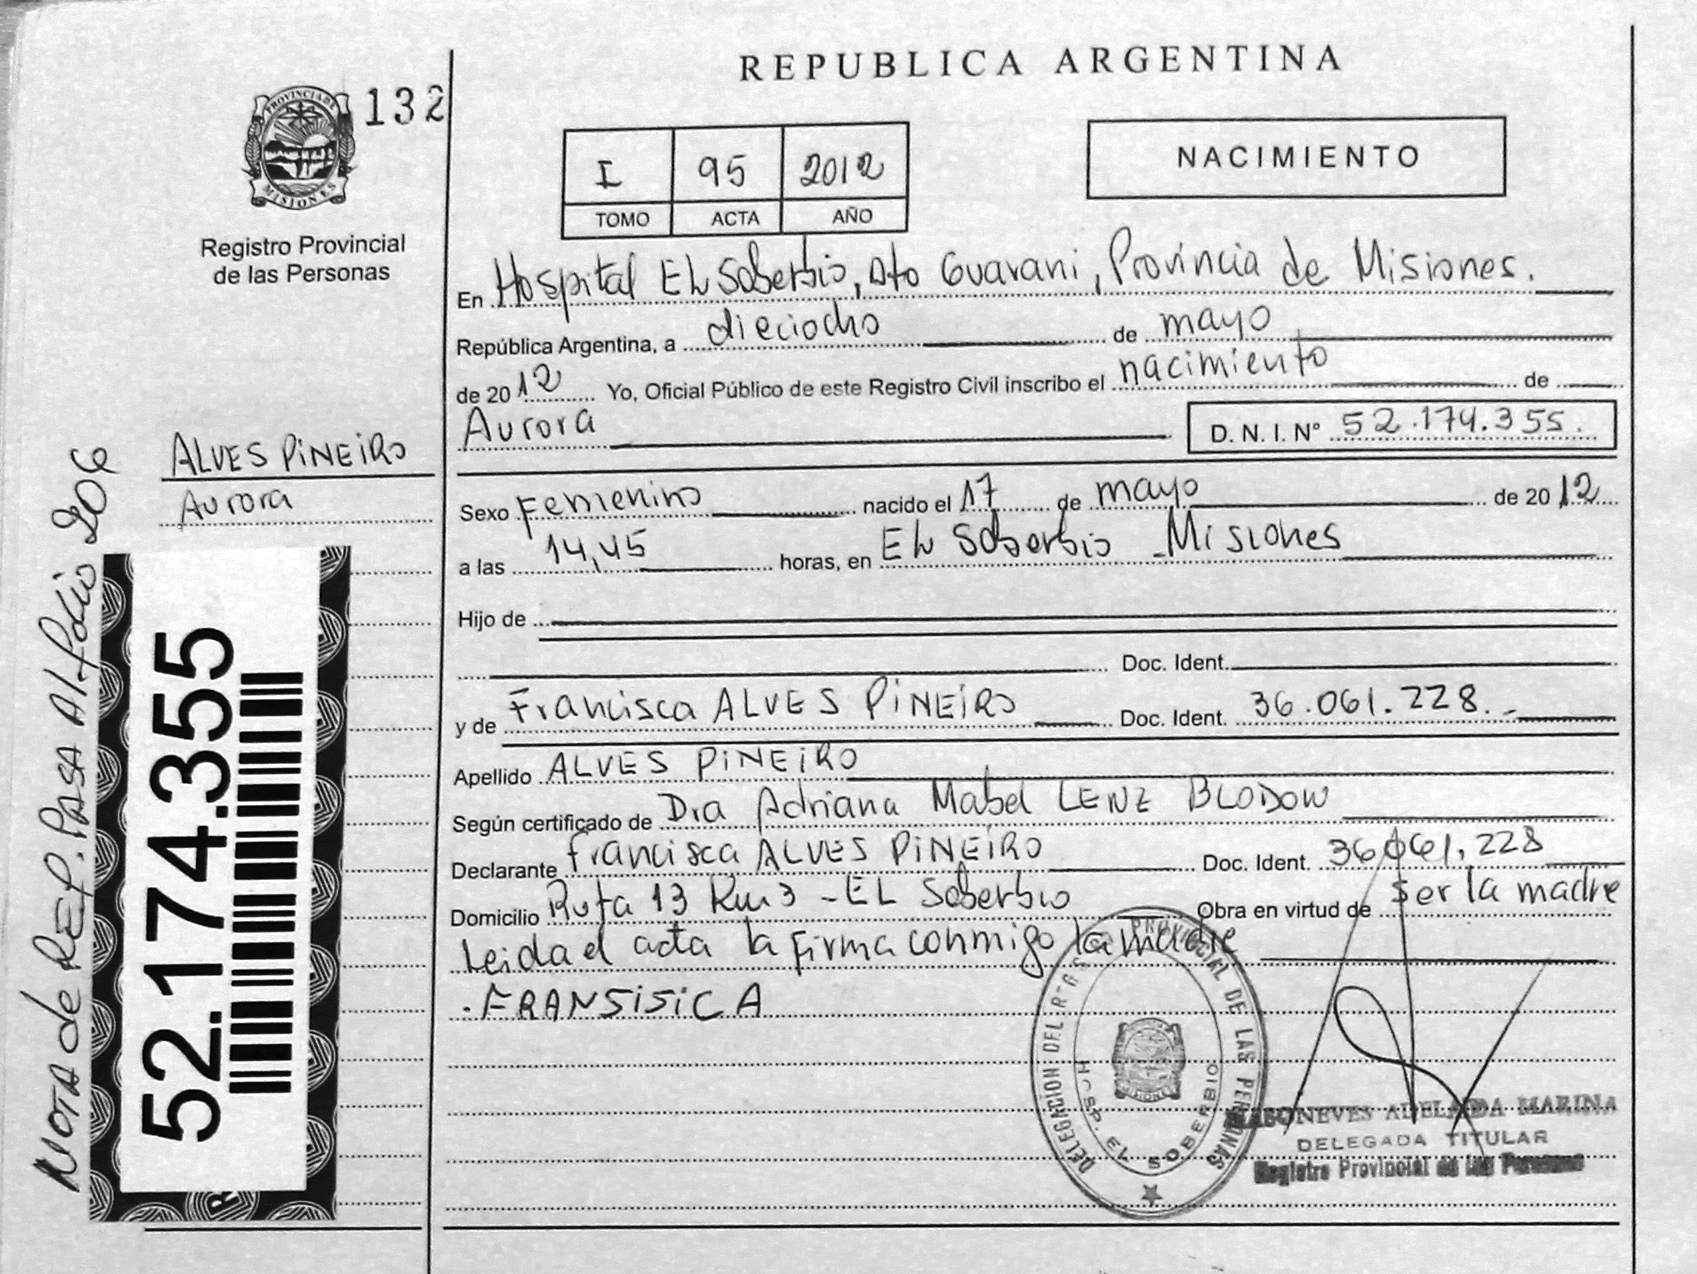 REPUBLICA ARGENTINA
PROVINCIA DE
MISIONES
132
Registro Provincial
de las Personas
I 95 2012
TOMO ACTA AÑO
NACIMIENTO
En Hospital EL Soberbio, Dto Guarani, Provincia de Misiones.
República Argentina, a dieciocho de mayo
de 2012 Yo, Oficial Público de este Registro Civil inscribo el nacimiento de
Aurora D.N.I. N° 52.174.355.
ALVES PiNEiRO
Aurora
Sexo Femenino nacido el 17 de mayo de 2012
a las 14,45 horas, en EL Soberbio - Misiones
Hijo de
Doc. Ident.
y de Francisca ALVES PiNEiRO Doc. Ident. 36.061.228.-
Apellido ALVES PiNEiRO
Según certificado de Dra Adriana Mabel LENZ BLODOW
Declarante Francisca ALVES PiNEiRO Doc. Ident. 36061,228
Domicilio Ruta 13 Km 3 - EL Soberbio Obra en virtud de ser la madre
Leida el acta la firma conmigo la madre
FRANSiSiCA
DELEGACION DEL REG PROVINCIAL DE LAS PERSONAS
HOSP. EL SOBERBIO
MISIONES
ADELAIDA MARINA
DELEGADA TITULAR
Registro Provincial de las Personas
NOTA de REF. PASA AL folio 206
52.174.355